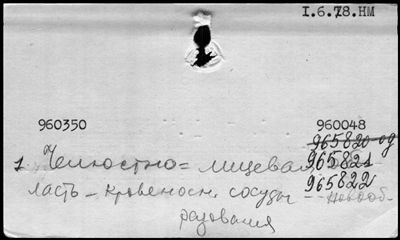 I.6.78.НМ
960350 960048
965820 од
1. Челюстно= лицевая 965821
ласть – кровеносн. сосуды 965822
– новооб
разования